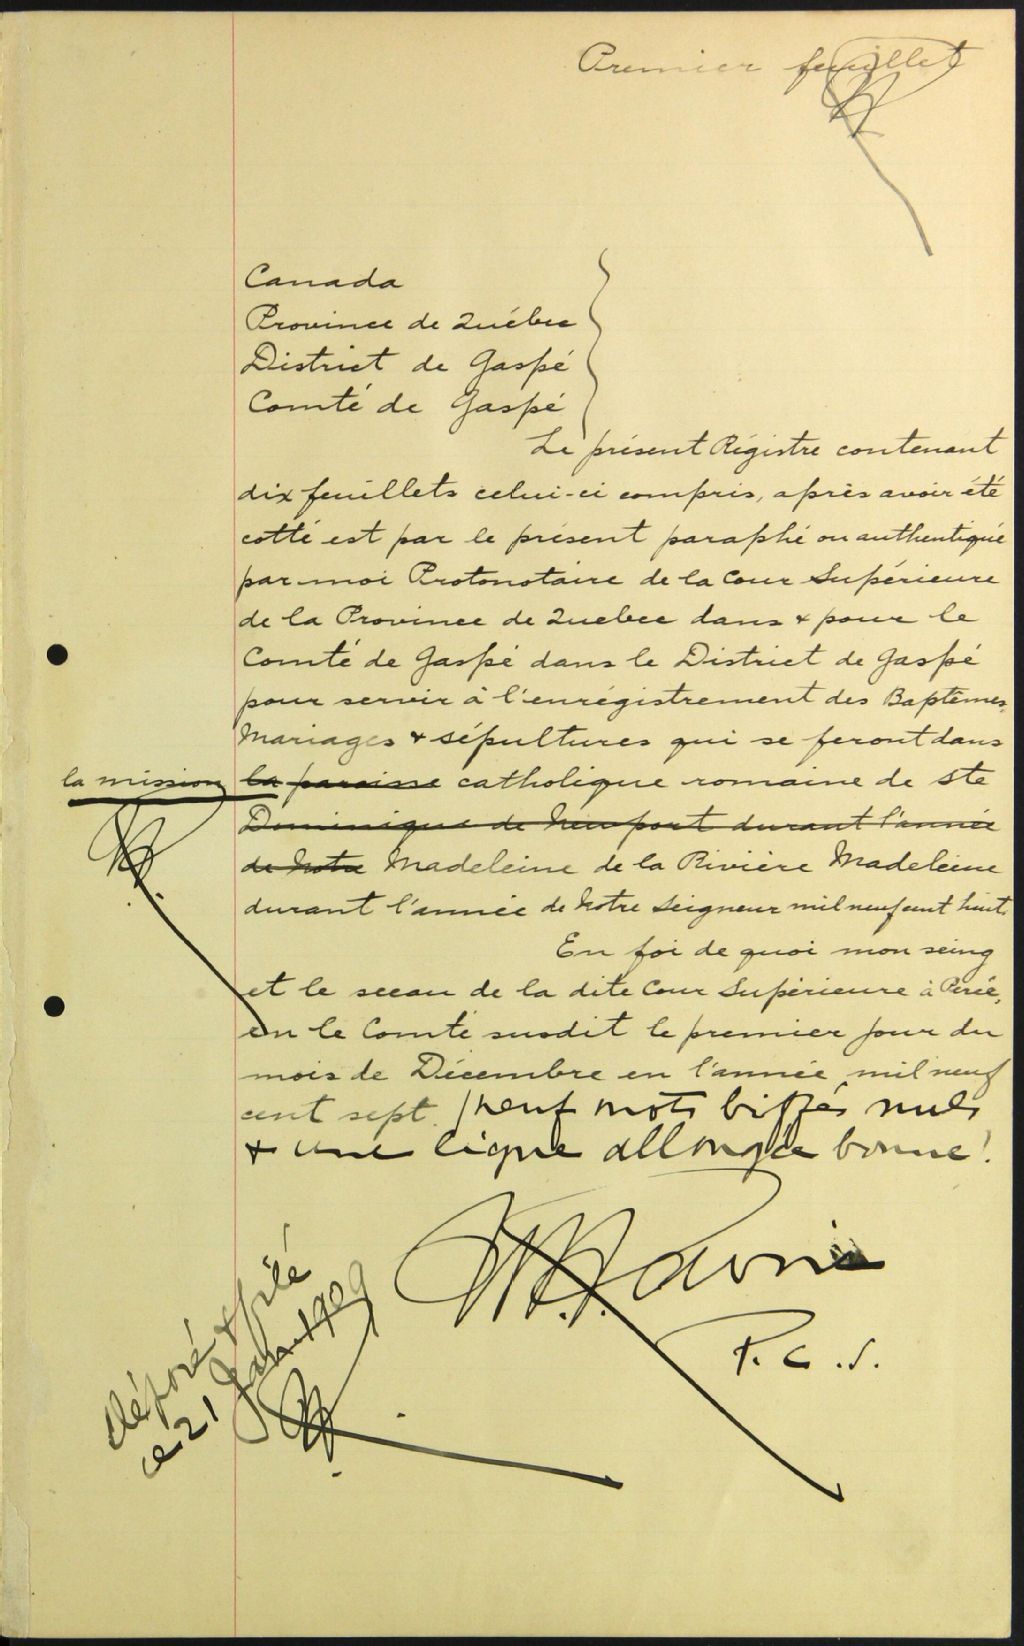 Premier feuillet
Canada
Province de Québec
District de Gaspé
Comté de Gaspé
Le présent Régistre contenant
dix feuillets celui-ci compris, après avoir été
cotté est par le présent paraphé ou authentiqué
par moi Protonotaire de la Cour Supérieure
de la Province de Quebec dans & pour le
Comté de Gaspé dans le District de Gaspé
pour servir à l'enrégistrement des Baptêmes,
Mariages & sépultures qui se feront dans
la mission la paroisse catholique romaine de Ste
Dominique de Newport durant l'année
de Notre Madeleine de la Rivière Madeleine
durant l'année de Notre Seigneur mil neuf cent huit.
En foi de quoi mon seing
et le sceau de la dite Cour Supérieure à Percé,
en le Comté susdit le premier jour du
mois de Décembre en l'année mil neuf
cent sept. / neuf mots biffés nuls
& une ligne allongée bonne!
P. C. S.
déposé & filé
ce 21 Jan. 1909